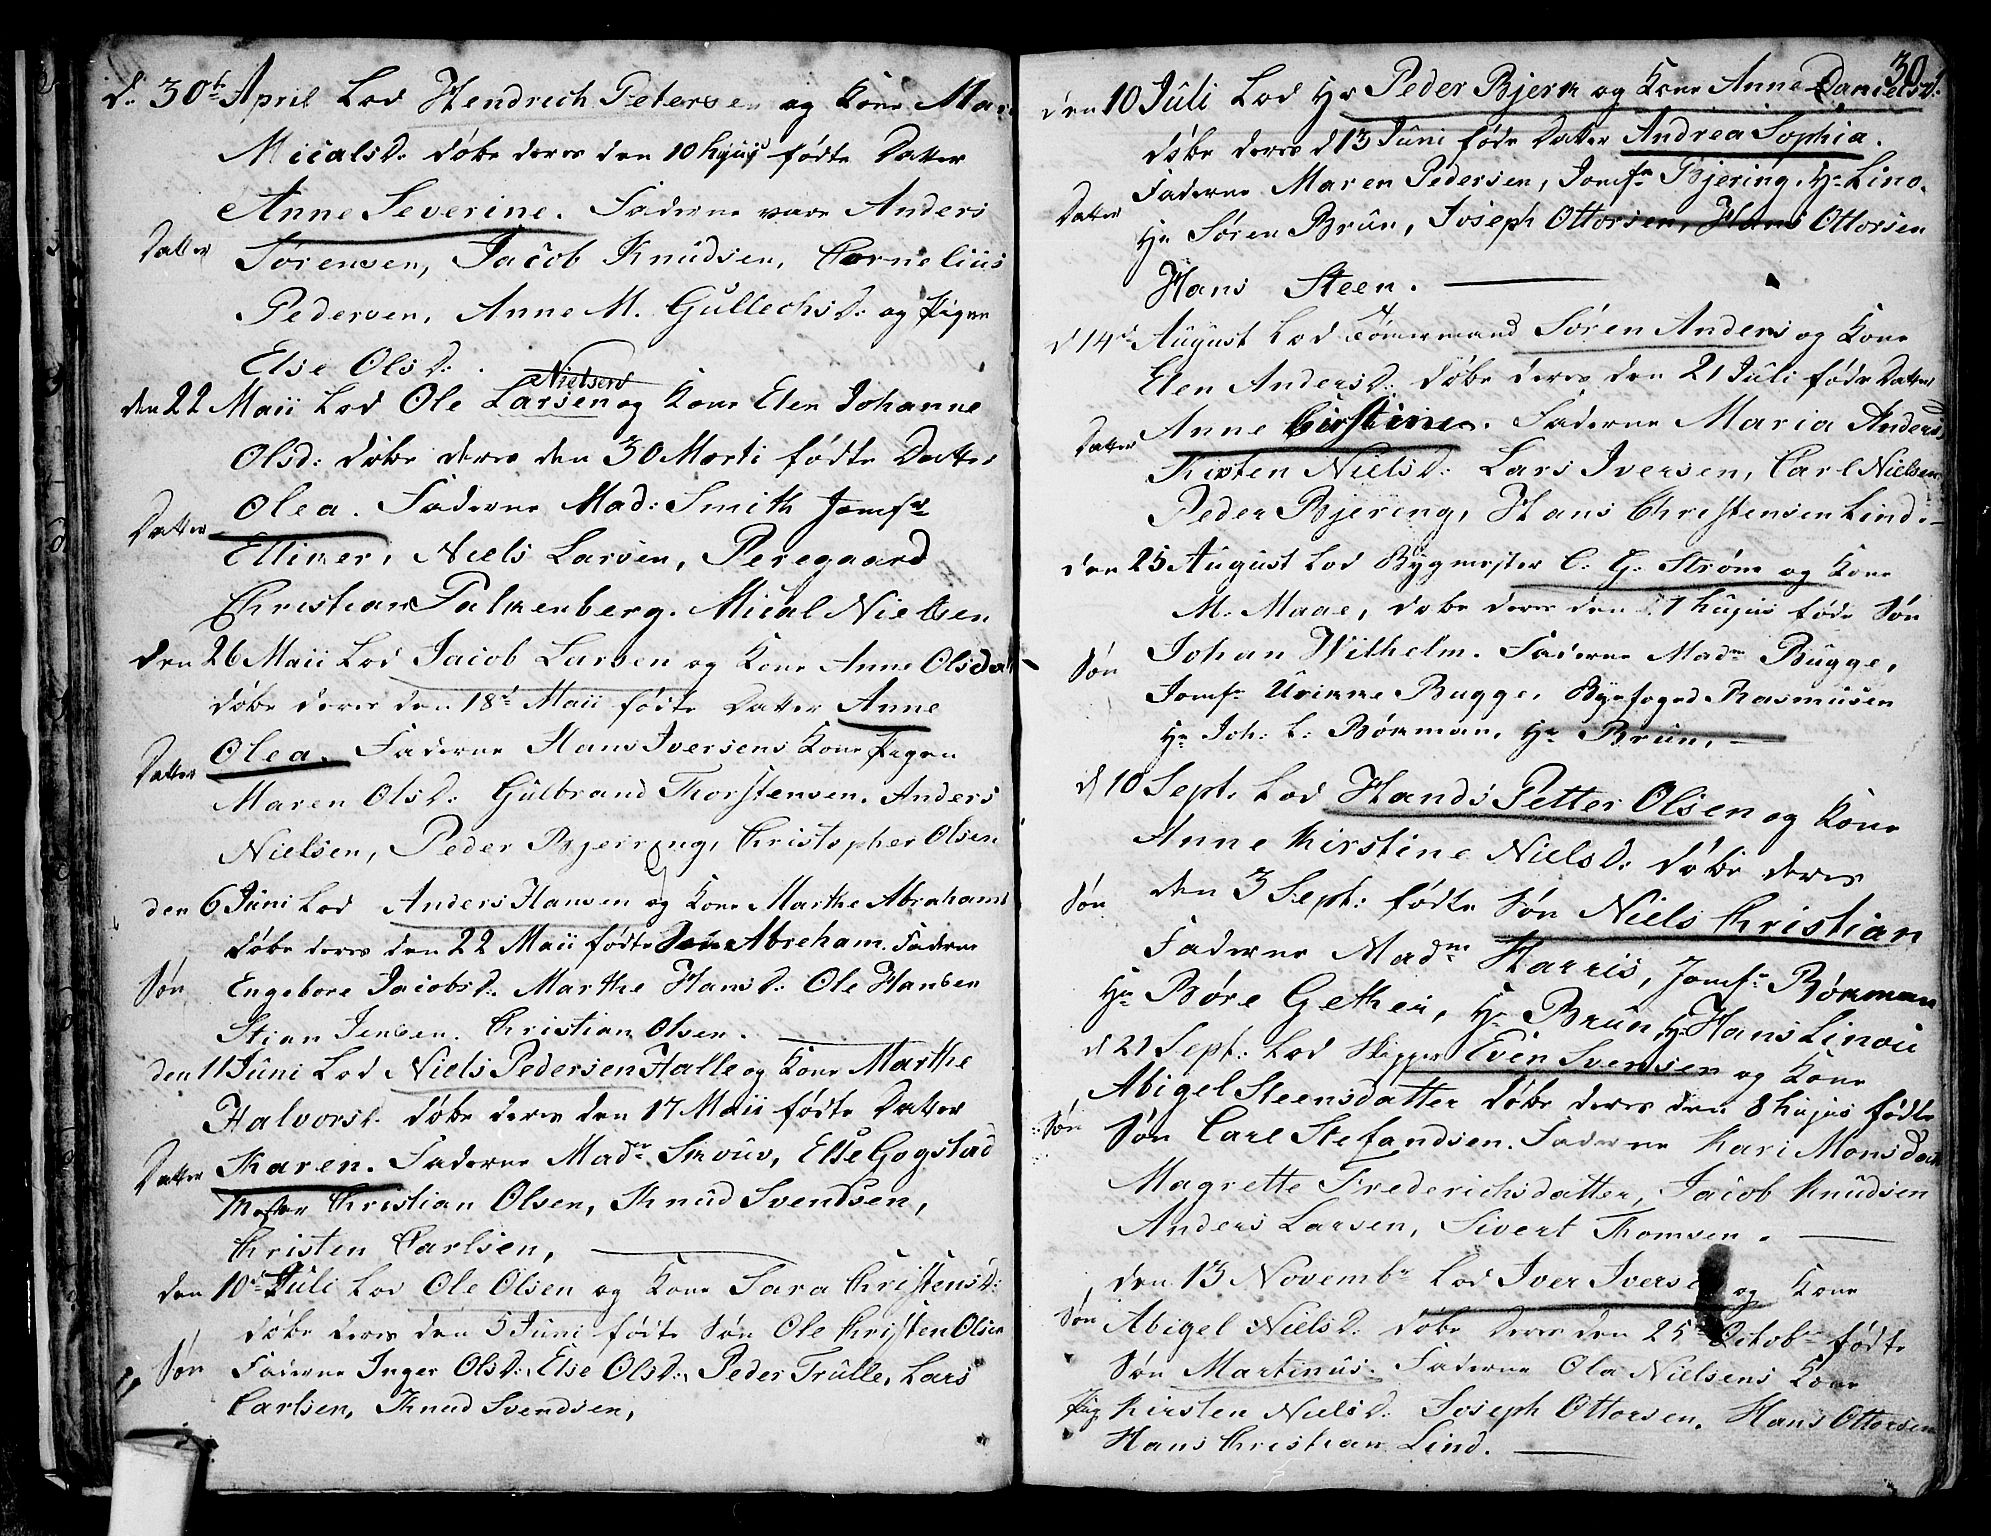 d. 30t April Lod Hendrich Petersen og Kone Mari
Micalsd. døbe deres den 10 hujus fødte Datter
Anne Severine. Faderne vare Anders
Datter
Sørensen, Jacob Knudsen, Cornelius
Pedersen, Anne M. Gullechsd: og Pigen
Else Olsd: .
Nielsen
den 22 Maii Lod Ole Larsen og Kone Elen Johanne
Olsd: døbe deres den 30 Marti fødte Datter
Olea. Faderne Mad: Smith Jomfr
Datter
Ellinger, Niels Larsen, Peregaard
Christian Falkenberg. Mical Nielsen
den 26 Maii Lod Jacob Larsen og Kone Anne Olsdat
døbe deres den 18d Maii fødte Datter Anne
Olea. Faderne Hans Iversens Kone Pigen
Datter
Maren Olsd: Gulbrand Thorstensen. Anders
Nielsen, Peder Bjerring, Christopher Olsen
den 6 Juni Lod Anders Hansen og Kone Marthe Abrahams
døbe deres den 22 Maii fødte Søn Abreham. Faderne
Søn Engebore Jacobsd. Marthe Hansd: Ole Hansen
Stian Jensen. Christian Olsen.
den 11 Juni Lod Niels Pedersen Halle og Kone Marthe
Halvorsd. døbe deres den 17 Maii fødte Datter
Datter Karen. Faderne Madm Skouv, Else Gogstad
Mester Christian Olsen, Knud Svendsen,
Christen Carlsen,
den 10d Juli Lod Ole Olsen og Kone Sara Christensd:
døbe deres den 5 Juni fødte Søn Ole Christen Olsen
Søn Faderne Inger Olsd: Else Olsd:, Peder Trulle, Lars
Carlsen, Knud Svendsen,
30
den 10 Juli Lod Hr Peder Bjerk og Kone Anne Danielsd:
døbe deres d 13 Juni føde Datter Andrea Sophia.
Faderne Maren Pedersen, Jomfr Bjering, Hr Lino.
Datter
Hr Søren Brun, Joseph Ottorsen, Hans Ottorsen
Hans Steen.
d 14d August Lod Tømermand Søren Anders og Kone
Elen Andersd: døbe deres den 21 Juli føde Datter
Anne Cirstine. Faderne Maria Andersd
Datter
Kirsten Nielsd: Lars Iversen, Carl Nielsen
Peder Bjering, Hans Christensen Lind.
den 25 August Lod Bygmester C. G. Strøm og Kone
M. Maae, døbe deres den 7 hujus føde Søn
Søn Johan Wilhelm. Faderne Madm Bugge,
Jomfr Ulrikke Bugge, Byefoged Rasmusen
Hr Joh: L. Børkman, Hr Brun,
d 10 Sept. Lod Hands Petter Olsen og Kone
Anne Kirstine Nielsd: døbe deres
Søn den 3 Sept: fødte Søn Niels Christian
Faderne Madm Harris, Jomfr Børkman
Hr Børe Gethen, Hr Brun, Hr Hans Linoii
d 21 Sept: Lod Skipper Even Svensen og Kone
Abigel Steensdatter døbe deres den 8 hujus fødte
Søn Søn Carl Stefandsen. Faderne Kari Monsdatt
Magrette Frederichsdatter, Jacob Knudsen
Anders Larsen, Sivert Thomsen.
den 13 Novembr Lod Iver Iversen og Kone
Søn Abigel Nielsd. døbe deres den 25 Octobr fødte
Søn Martinus. Faderne Ola Nielsens Kone
Pig Kirsten Nielsd. Joseph Ottorsen. Hans Ottorsen
Hans Christian Lind.